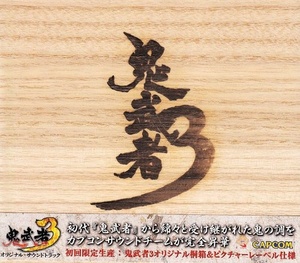 鬼武者3
鬼武者3
オリジナル・サウンドトラック
初代「鬼武者」から錦々と受け継がれた鬼の調を
カプコンサウンドチームが完全昇華
CAPCOM
初回限定生産：鬼武者3オリジナル桐箱&ピクチャーレーベル仕様